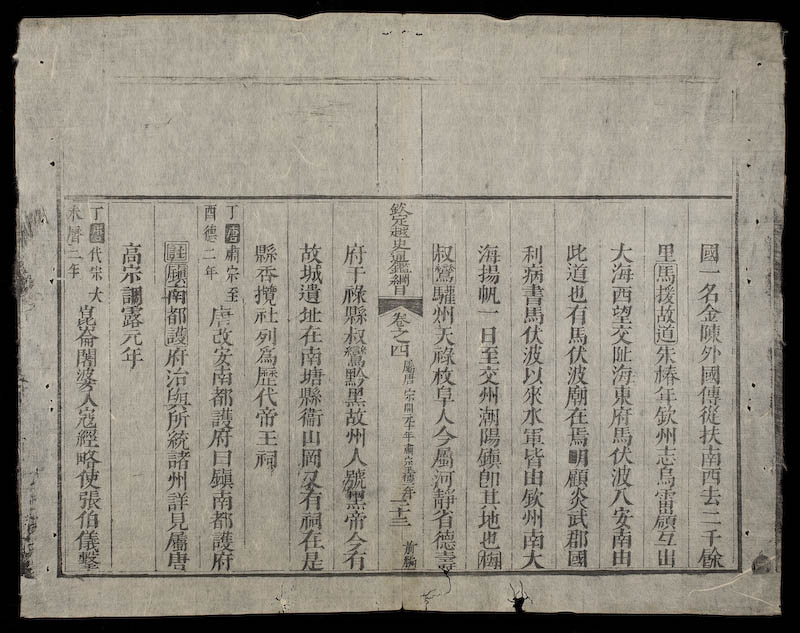 國一名金陳外國傳從扶南西去二千餘
里馬援故道朱椿年欽州志烏雷嶺互出
大海西望交阯海東府馬伏波入安南由
此道也有馬伏波廟在焉明顧炎武郡國
利病書馬伏波以來水軍皆由欽州南大
海揚帆一日至交州潮陽鎮卽其地也梅
叔鸞驩州天祿枚阜人今屬河靜省德壽
欽定越史通鑑綱目 卷之四 屬唐 宗開元十年 肅宗至德二年 二十三 前編
府干祿縣叔鸞黔黑故州人號黑帝今有
故城遺址在南塘縣衞山岡又有祠在是
縣香攬社列爲歷代帝王祠
丁酉唐肅宗至德二年 唐改安南都護府曰鎮南都護府
註鎮南都護府治與所統諸州詳見屬唐
高宗調露元年
丁未唐代宗大曆二年 崑崙闍婆人寇經略使張伯儀擊